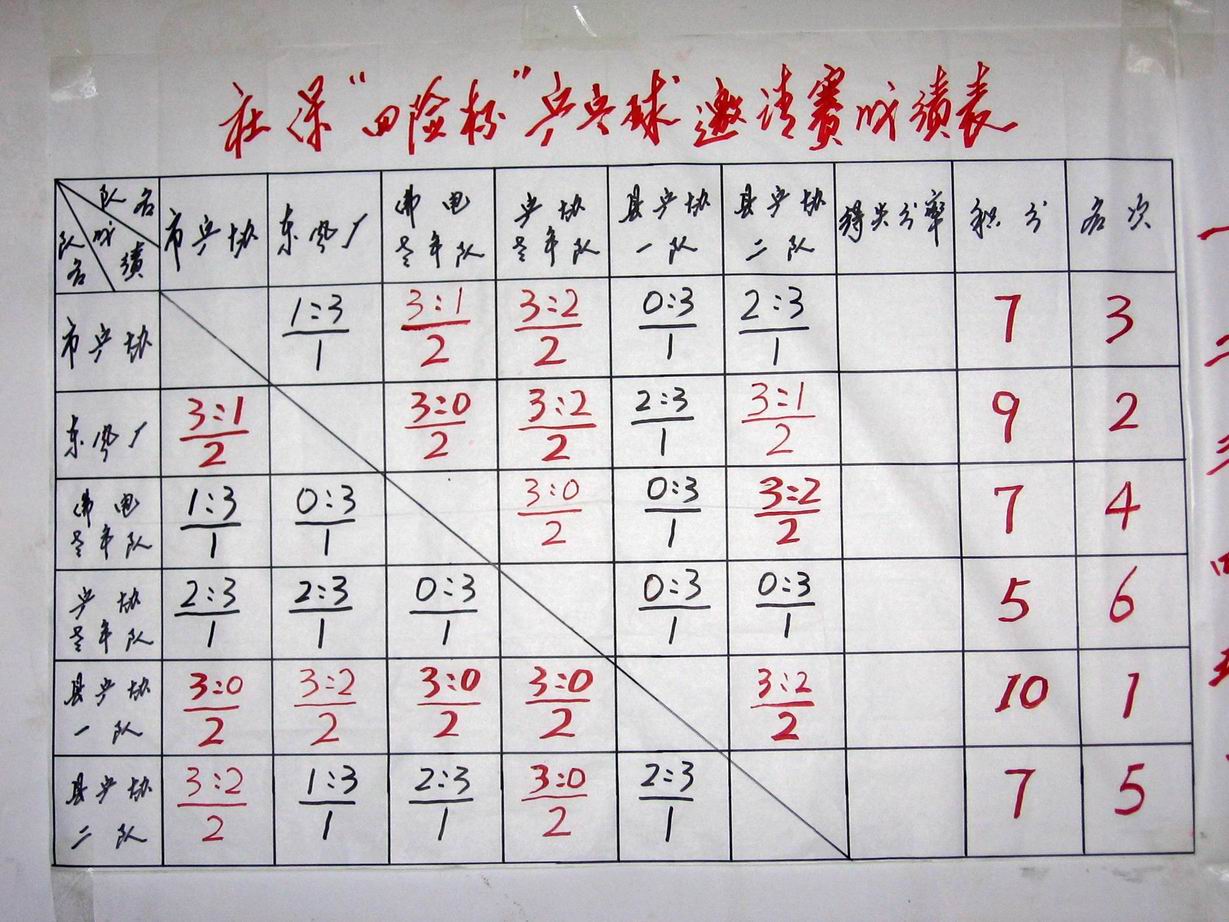 社保“四险杯”乒乓球邀请赛成绩表
队名 成绩 队名 市乒协 东风厂 佛电老年队 乒协老年队 县乒协一队 县乒协二队 得失分率 积分 名次
市乒协 1:3/1 3:1/2 3:2/2 0:3/1 2:3/1 7 3
东风厂 3:1/2 3:0/2 3:2/2 2:3/1 3:1/2 9 2
佛电老年队 1:3/1 0:3/1 3:0/2 0:3/1 3:2/2 7 4
乒协老年队 2:3/1 2:3/1 0:3/1 0:3/1 0:3/1 5 6
县乒协一队 3:0/2 3:2/2 3:0/2 3:0/2 3:2/2 10 1
县乒协二队 3:2/2 1:3/1 2:3/1 3:0/2 2:3/1 7 5